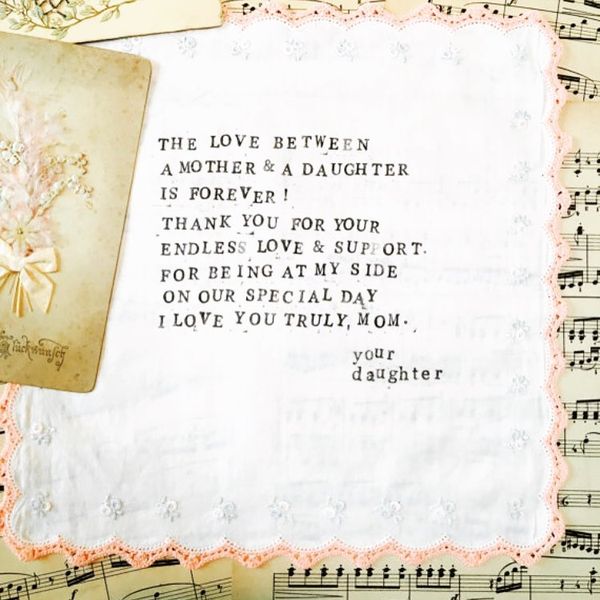 THE LOVE BETWEEN
A MOTHER & A DAUGHTER
IS FOREVER!
THANK YOU FOR YOUR
ENDLESS LOVE & SUPPORT.
FOR BEING AT MY SIDE
ON OUR SPECIAL DAY
I LOVE YOU TRULY, MOM.
your
daughter
Glückwunsch